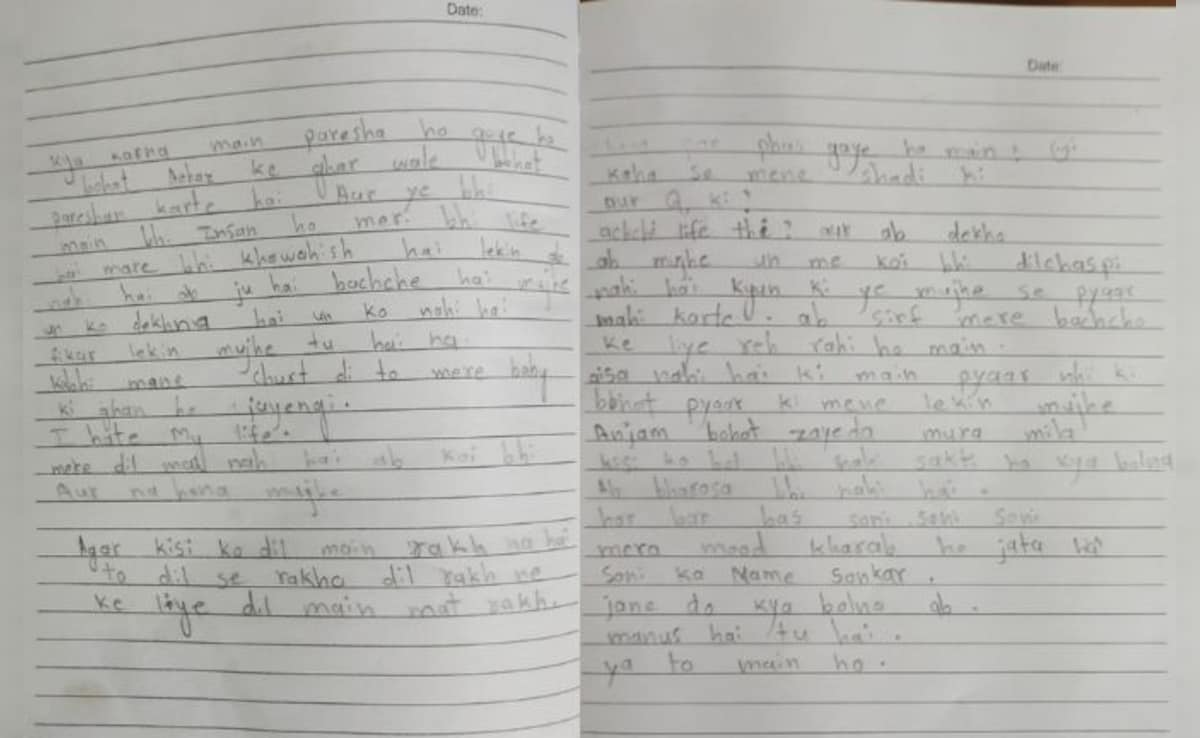 Date:
kya karna main paresha ho gaye ho
bohot ke ghar wale bohot
pareshan karte hai Aur ye bhi
main bhi Insan ho meri bhi life
hai mare bhi khawohish hai lekin
nahi hai ab ju hai bachche hai mujhe
un ko dekhna hai un ko nahi hai
fikar lekin mujhe tu hai na
kabhi mane churt di to mere baby
ki ghan ho juyengi.
I hate my life.
mere dil nahi hai ab koi bhi
Aur na hona mujhe
Agar kisi ko dil main rakh na hai
to dil se rakho dil rakh ne
ke liye dil main mat rakh.
Date:
phas gaye ho main?
kaha se mene shadi ki
aur Q, ki?
achchi life thi? aur ab dekho
ab mujhe un me koi bhi dilchaspi
nahi hai kyun ki ye mujhe se pyaar
nahi karte. ab sirf mere bachcho
ke liye reh rahi ho main.
aisa nahi hai ki main pyaar nhi ki
bohot pyaar ki mene lekin mujhe
Anjam bohot zayeda mura mila
kisi ko bol bhi nahi sakti ho kya bolna
Ab bharosa bhi nahi hai.
har bar bas soni soni soni
mera mood kharab ho jata hai
Soni ka Name Sonkar.
jane do kya bolna ab.
manus hai tu hai.
ya to main ho.